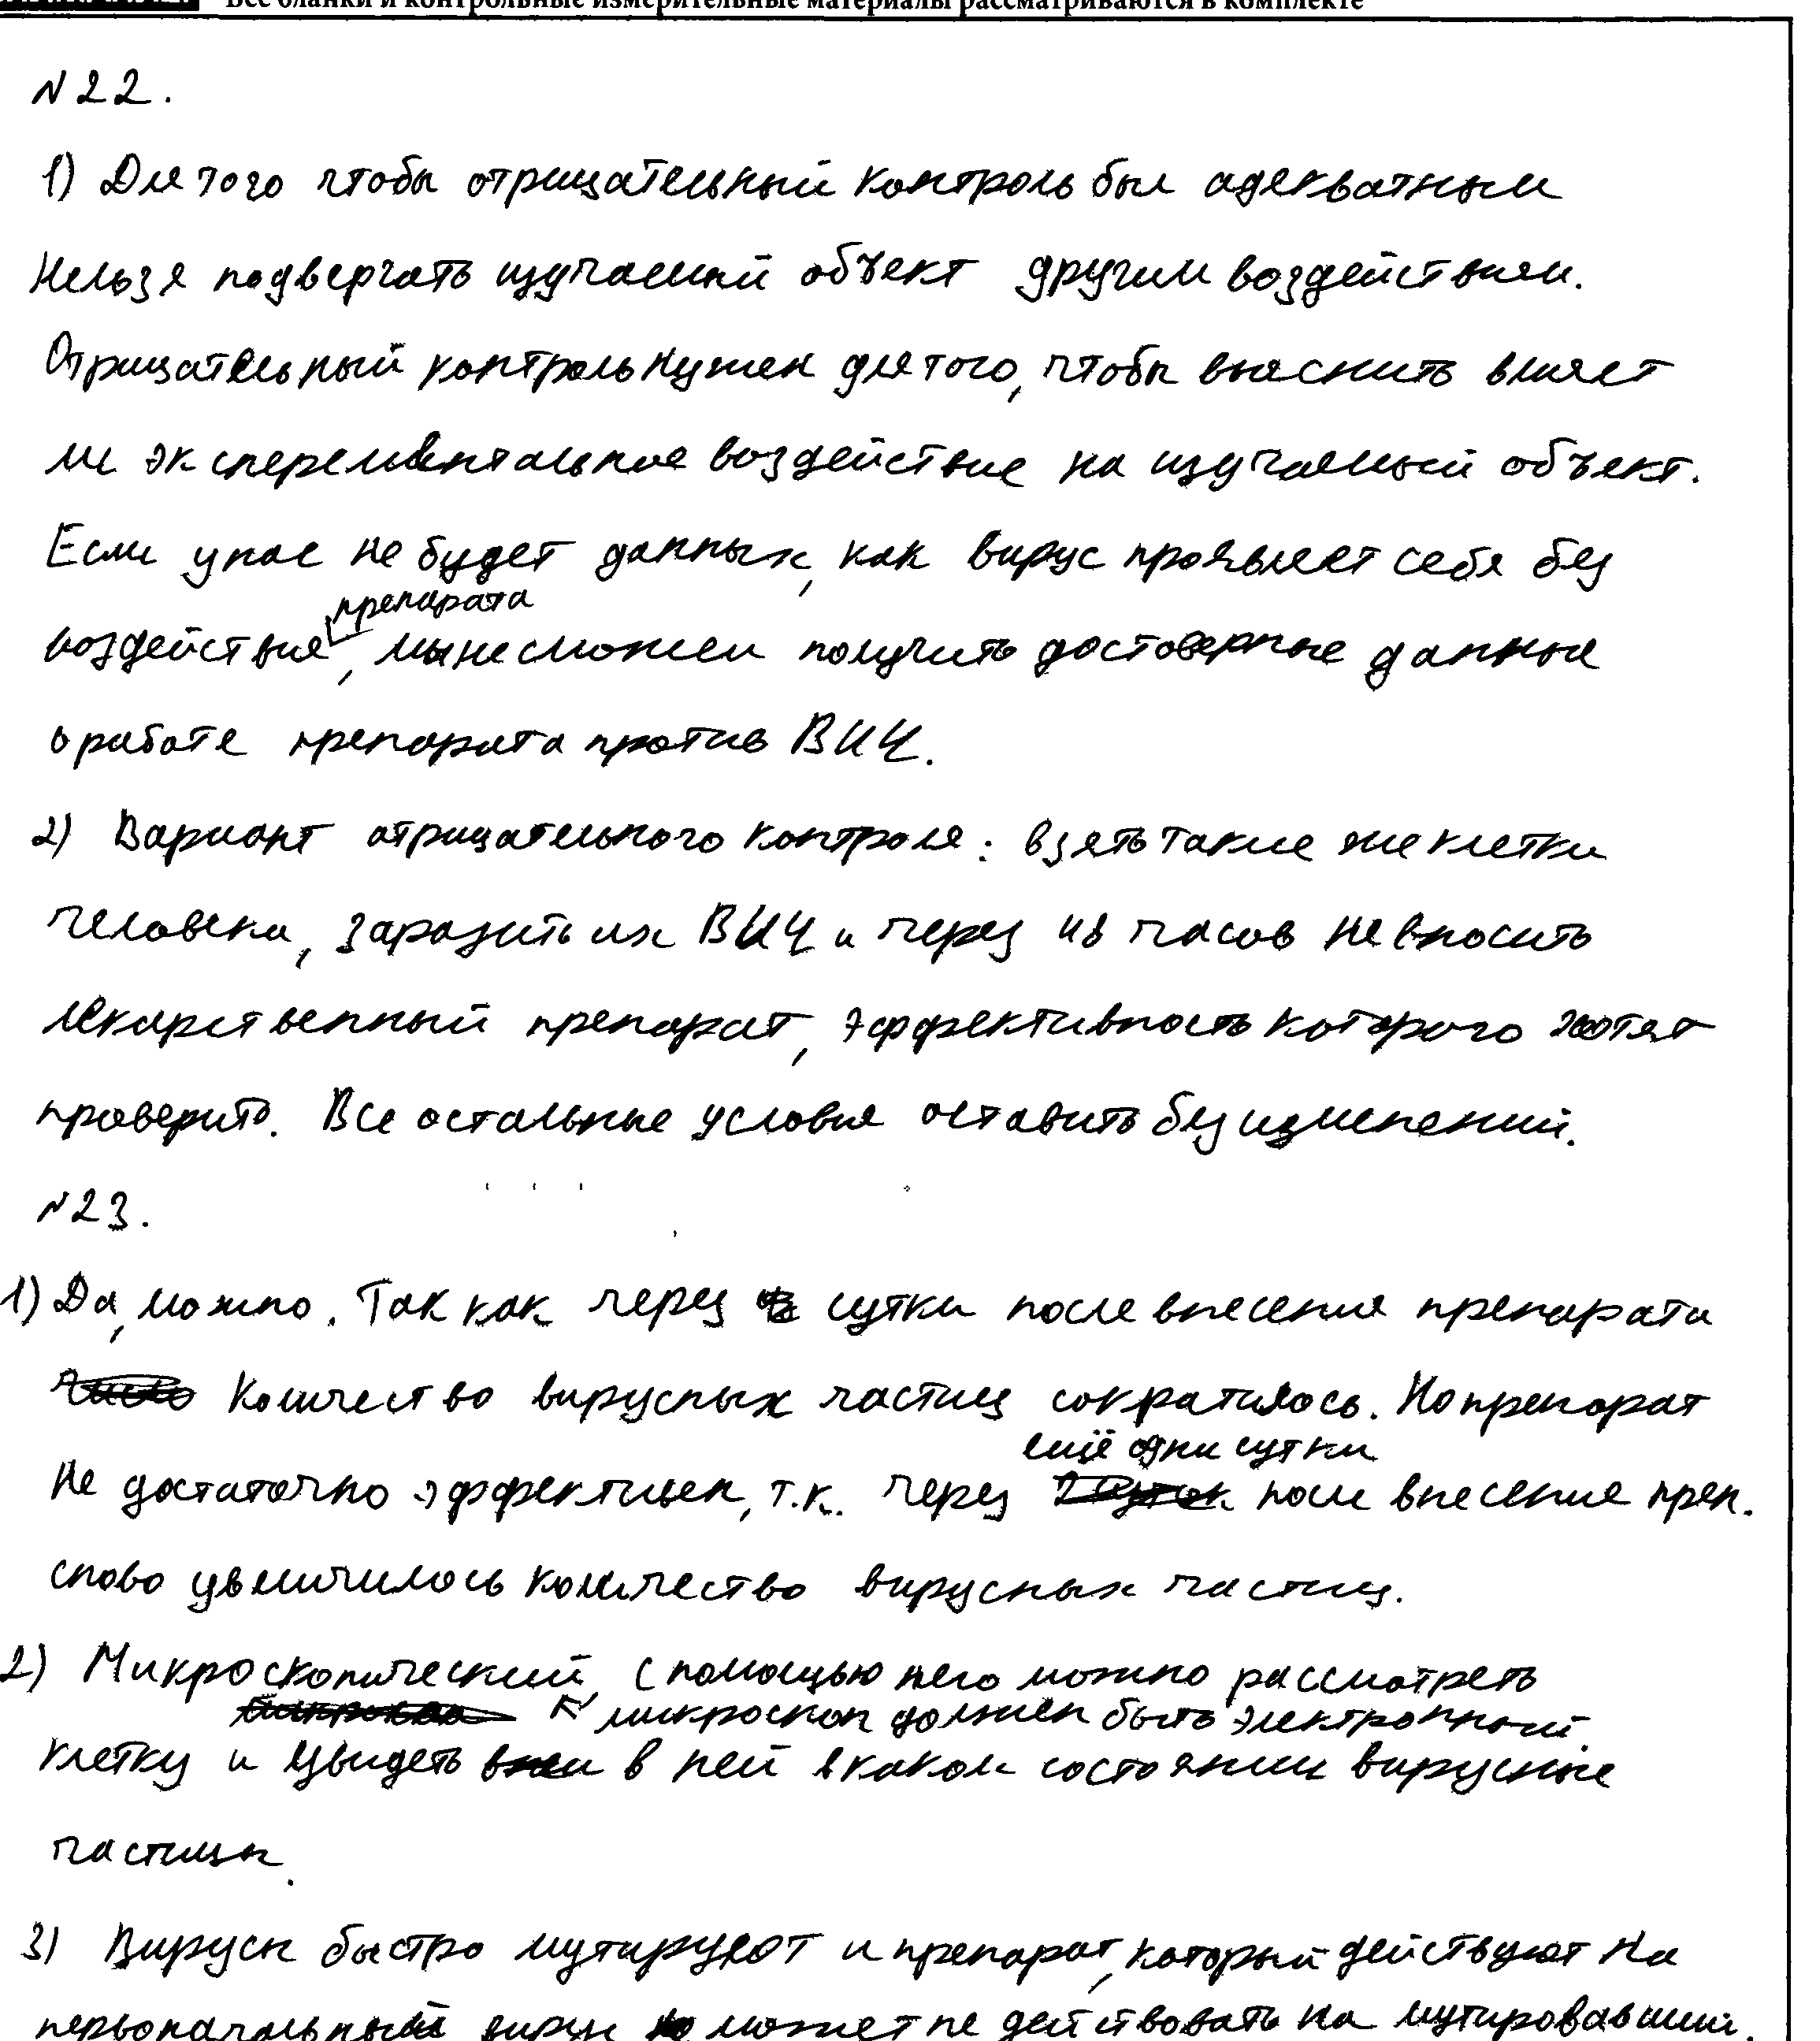 Все бланки и контрольные измерительные материалы рассматриваются в комплекте
№22.
1) Для того чтобы отрицательный контроль был адекватным
нельзя подвергать изучаемый объект другим воздействиям.
Отрицательный контроль нужен для того, чтобы выяснить влияет
ли эксперементальное воздействие на изучаемый объект.
Если у нас не будет данных, как вирус проявляет себя без
препарата
воздействия, мы не сможем получить достоверные данные
о работе препарата против ВИЧ.
2) Вариант отрицательного контроля: взять такие же клетки
человека, заразить их ВИЧ и через 48 часов не вносить
лекарственный препарат, эффективность которого хотят
проверить. Все остальные условия оставить без изменений.
№23.
1) Да, можно. Так как через сутки после внесения препарата
количество вирусных частиц сократилось. Но препарат
ещё одни сутки
не достаточно эффективен, т.к. через после внесения преп.
снова увеличилось количество вирусных частиц.
2) Микроскопический, с помощью него можно рассмотреть
микроскоп должен быть электронный.
клетку и увидеть в ней в каком состоянии вирусные
частицы.
3) Вирусы быстро мутируют и препарат, который действуют на
первоначальный вирус может не действовать на мутировавший.